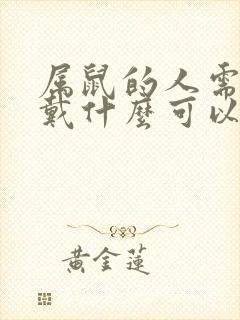 属鼠的人需
戴什麼可以
黄金蓮